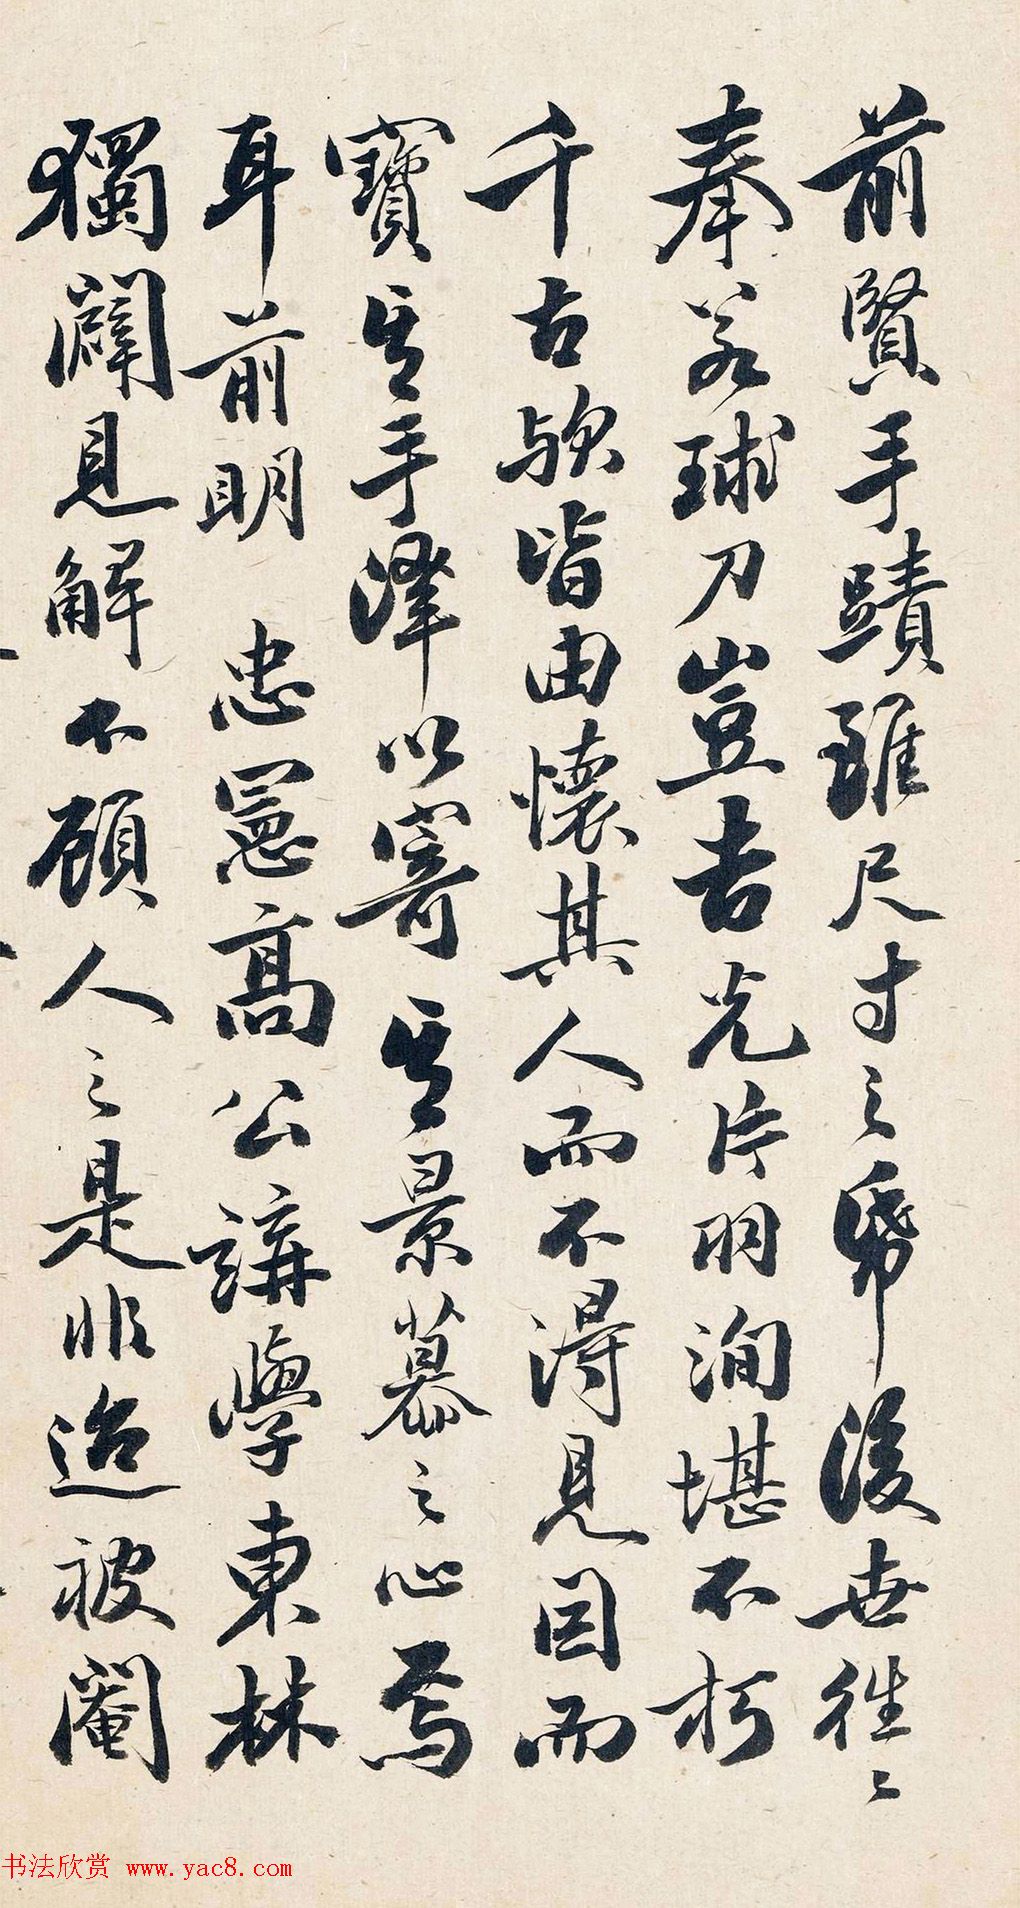 前賢手蹟雖尺寸之帋後世往〻
奉若球刀豈吉光片羽洵堪不朽
千古歟皆由懷其人而不得見因而
寶其手澤以寄其景慕之心焉
耳前明 忠憲高公講學東林
獨闢見解不顧人之是非迨被閹
书法欣赏 www.yac8.com